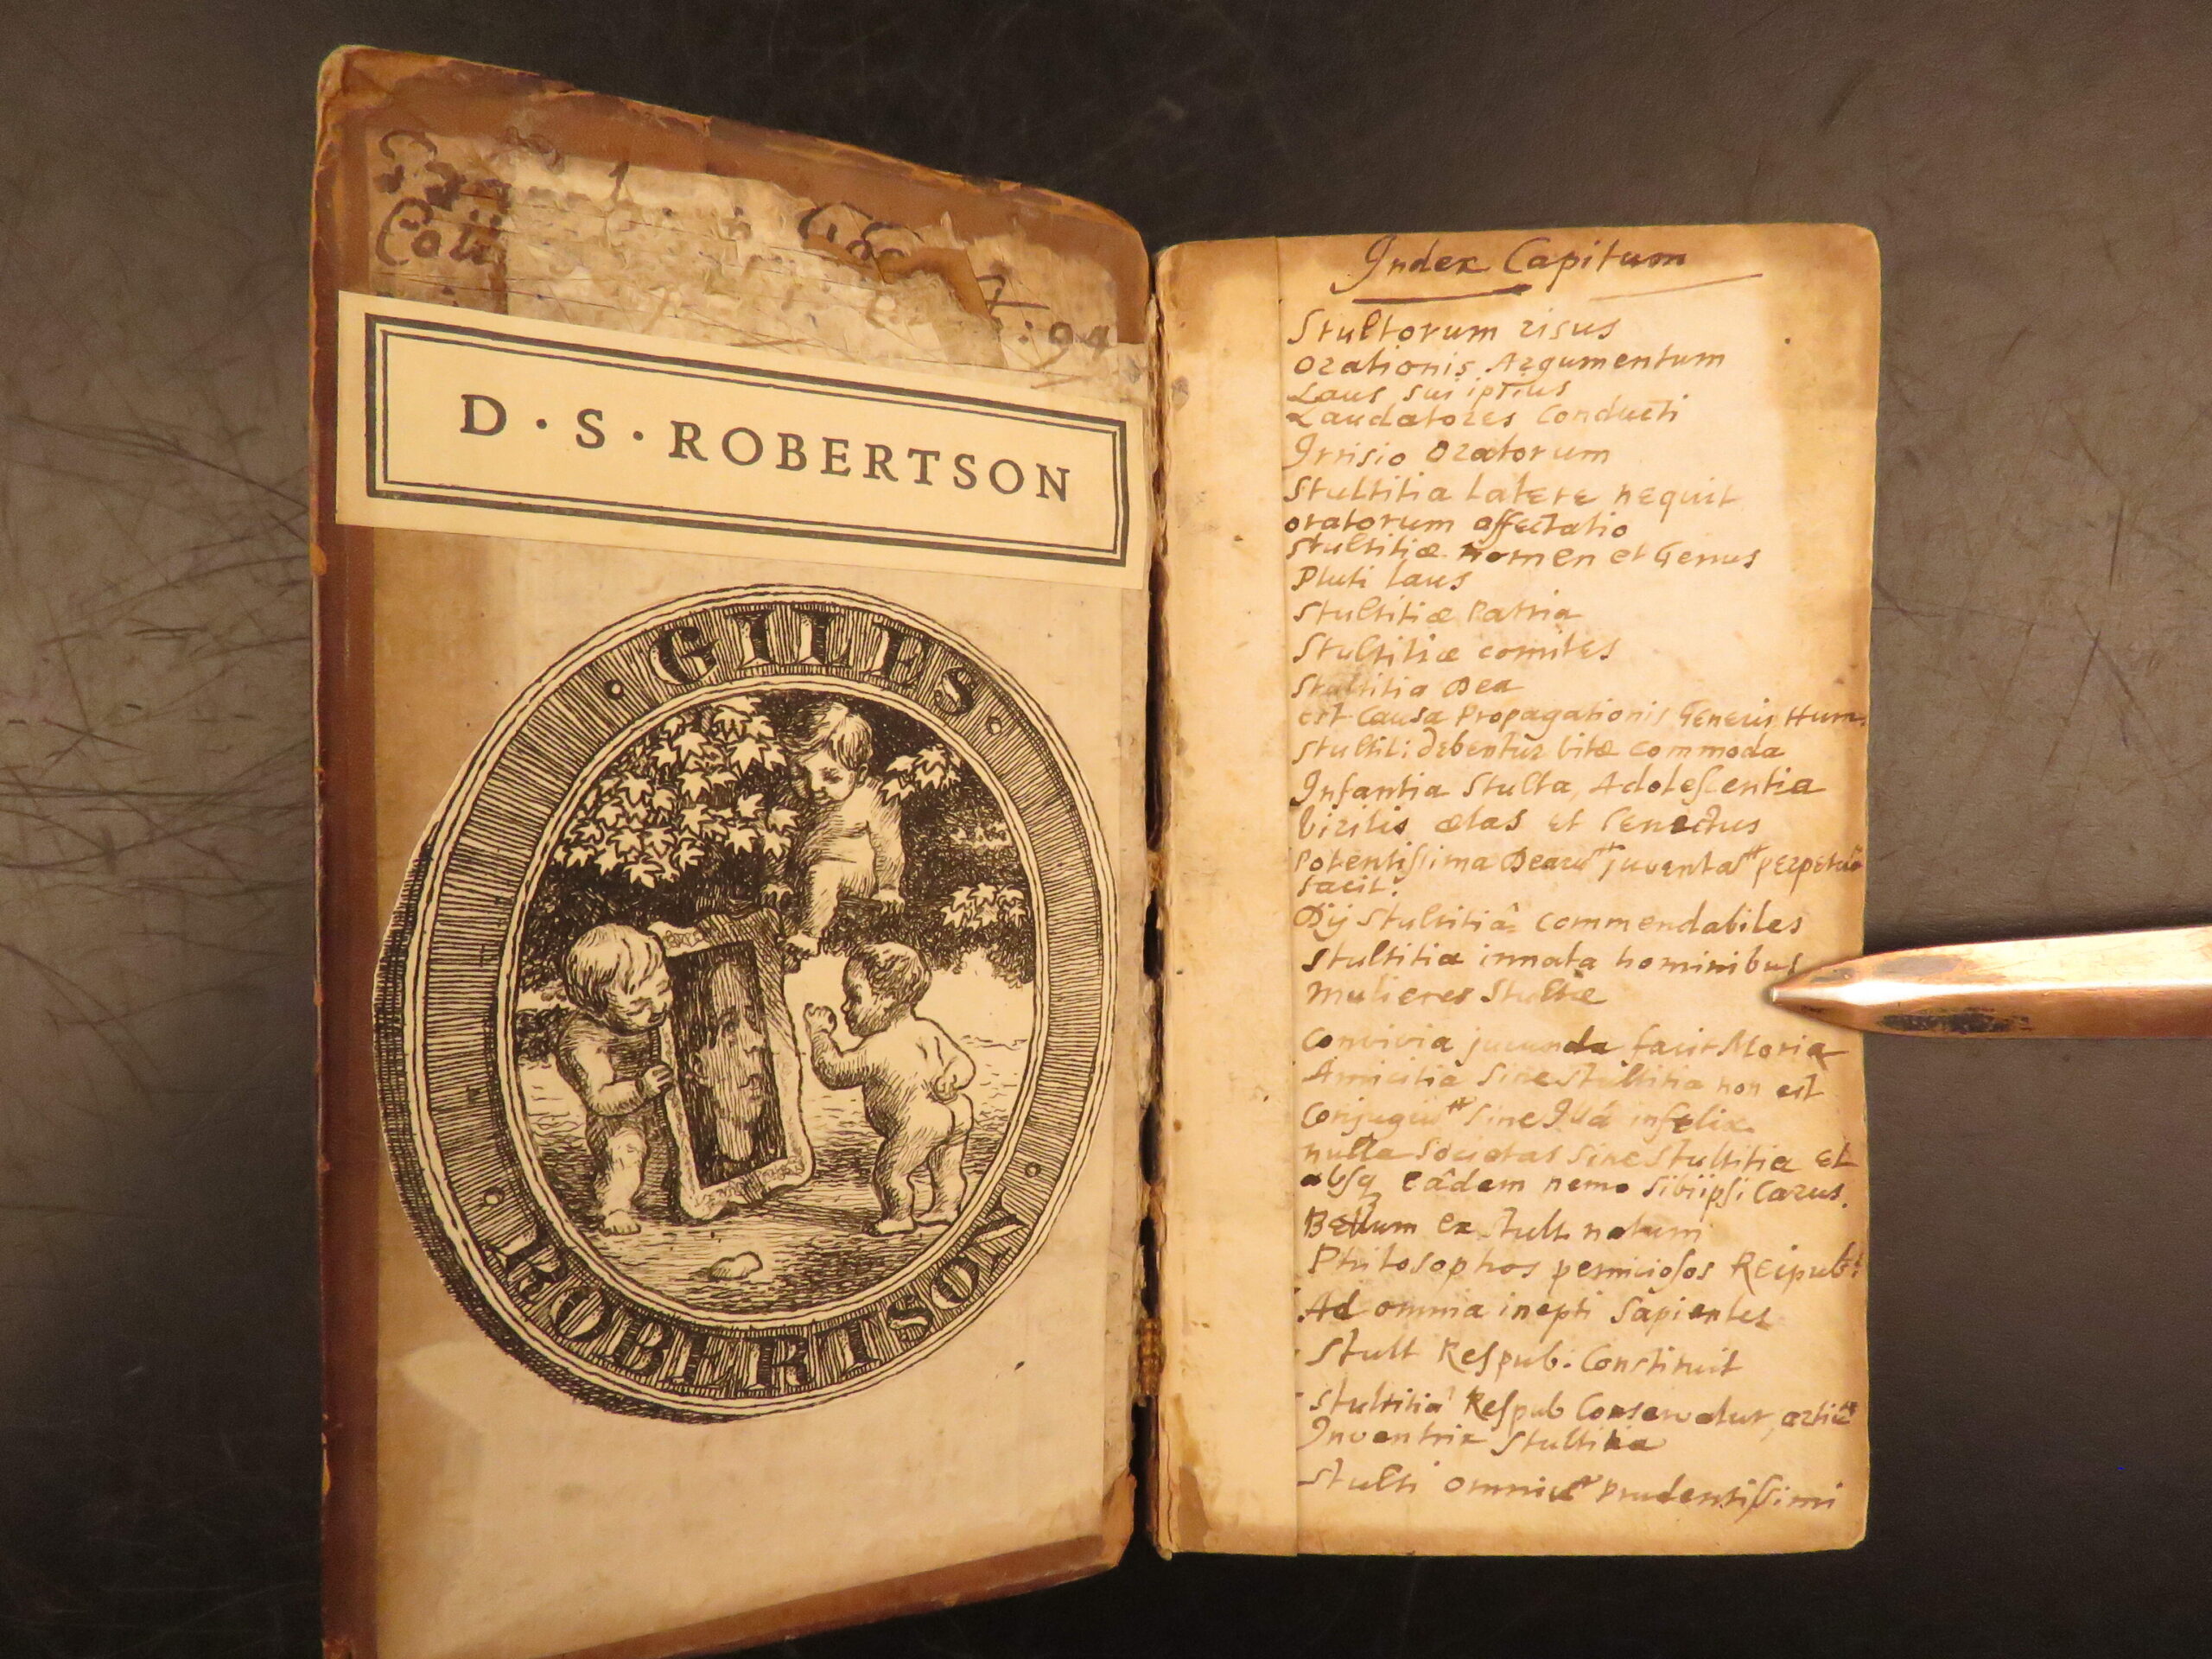 Coll
: 94
D · S · ROBERTSON
· GILES ·
· ROBERTSON ·
Index Capitum
Stultorum risus
Orationis Argumentum
Laus sui ipsius
Laudatores Conducti
Irrisio Oratorum
Stultitia latere nequit
oratorum affectatio
Stultitiæ nomen et Genus
Pluti laus
Stultitiæ Patria
Stultitiæ comites
Stultitia Dea
est Causa Propagationis Generis Hum.
Stultit: debentur vitæ commoda
Infantia Stulta, Adolescentia
Virilis ætas et Senectus
Potentissima Dearu juventa perpetuâ
facit.
Dij Stultitiâ commendabiles
Stultitia innata hominibus
Mulieres Stultæ
Convivia jucunda facit Moria
Amicitia Sine Stultitia non est
Conjugiu Sine Illâ infelix
nulla Societas Sine Stultitia et
absq eâdem nemo Sibi ipsi Carus.
Bellum ex Stult. natum
Philosophos perniciosos Reipub:
Ad omnia inepti Sapientes
Stult Respub. Constituit
Stultitiâ Respub Conservatur, artiu
Inventrix Stultitia
Stulti omniu Prudentissimi